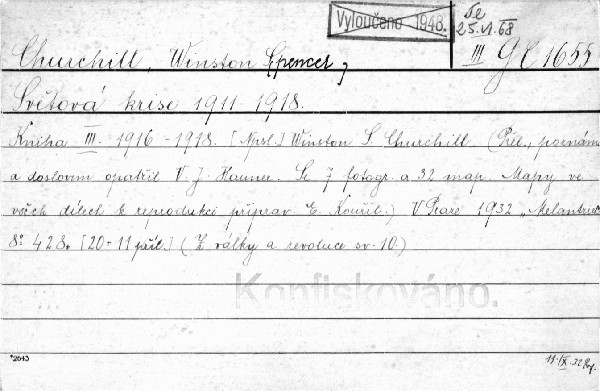 Vyloučeno 1948.
Te
25.VI.68
Churchill, Winston Spencer,
III Gl 1655
Světová krise 1911-1918.
Kniha III. 1916-1918. [Npsl.] Winston S. Churchill. (Přel., poznám
a doslovem opatřil V. J. Hauner. Se 7 fotogr. a 32 map. Mapy ve
všech dílech k reprodukci připrav. E. Kouřil.) V Praze 1932 „Melantrich"
8° 428. [20-11 příl.] (Z války a revoluce sv. 10.)
Konfiskováno.
*2643
11.IX.32